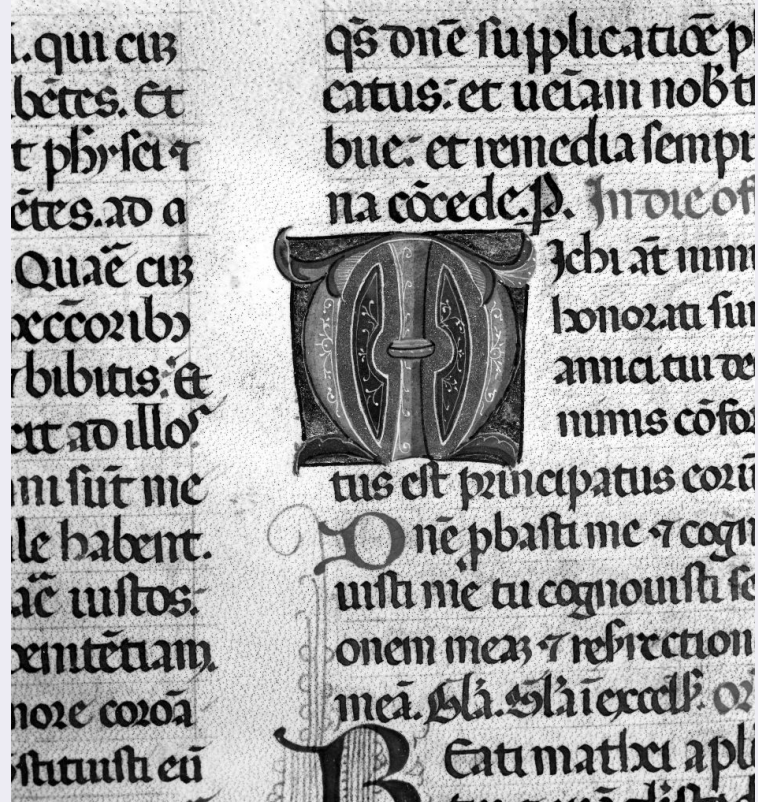 .qui cuꝫ
bētes. Et
t phẏsci ⁊
ētes. ad a
. Quaē cuꝫ
peccōribꝰ
bibitis: Et
ait ad illoꝝ
ni sūt me
le habent.
ac̄ iustos:
penitētiam.
more coroā
ſtituisti eū
qs̄ dn̄e supplicatiōe pl
catus: et ueīam nob̄ t
bue: et remedia sempi
na cōcede. P. In die
M Ichi aūt nim
honorati sun
amici tui de
nimis cōfor
tus est principatus eorū
Dn̄e ꝓbasti me ⁊ cogn
uisti me tu cognouisti se
onem meaꝫ ⁊ resr̄rection
meā. Gl̄a. Gl̄a ī excels̄. or
BEati mathei apl̄i